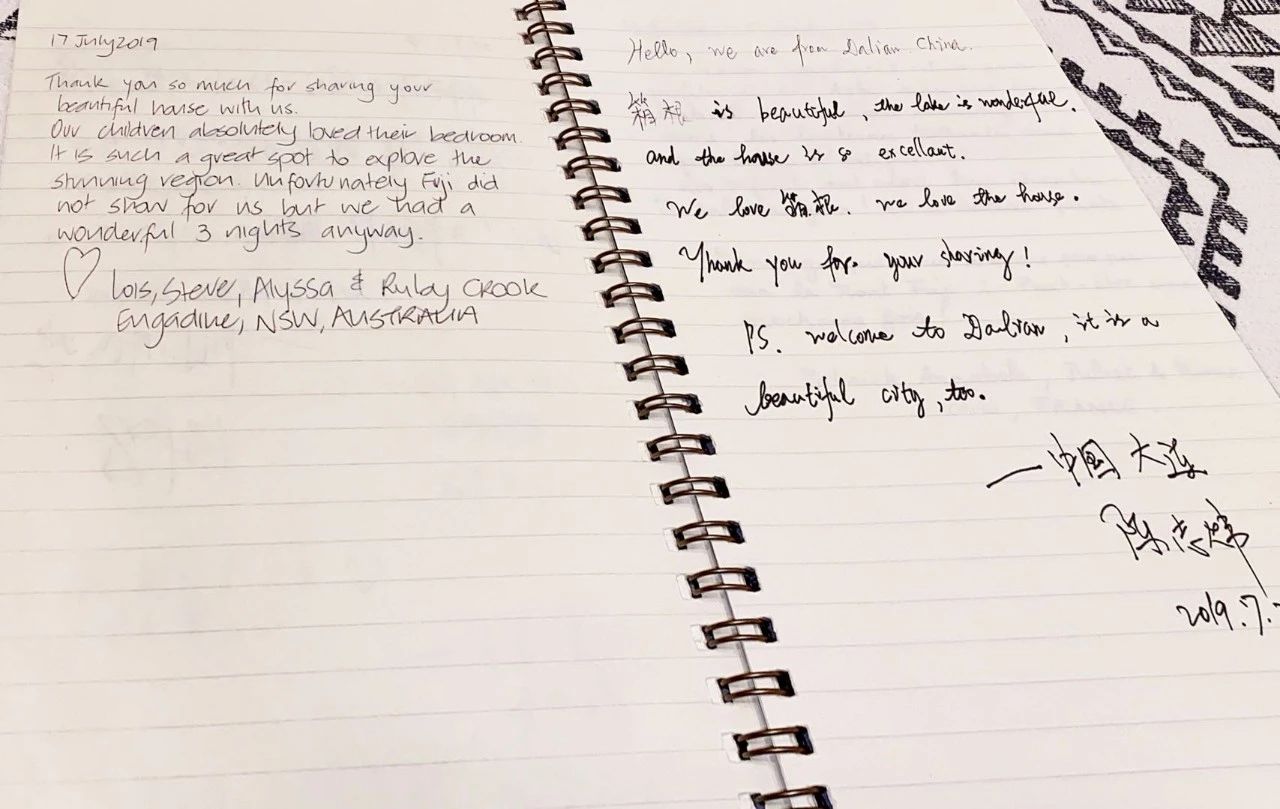 17 July 2019
Thank you so much for sharing your
beautiful house with us.
Our children absolutely loved their bedroom.
It is such a great spot to explore the
stunning region. Unfortunately Fuji did
not show for us but we had a
wonderful 3 nights anyway.
Lois, Steve, Alyssa & Ruby CROOK
Engadine, NSW, AUSTRALIA
Hello, we are from Dalian China.
箱根 is beautiful, the lake is wonderful.
and the house is so excellant.
We love 箱根. We love the house.
Thank you for. your sharing!
PS. welcome to Dalian, it is a
beautiful city, too.
—中国 大连
陈志
2019.7.